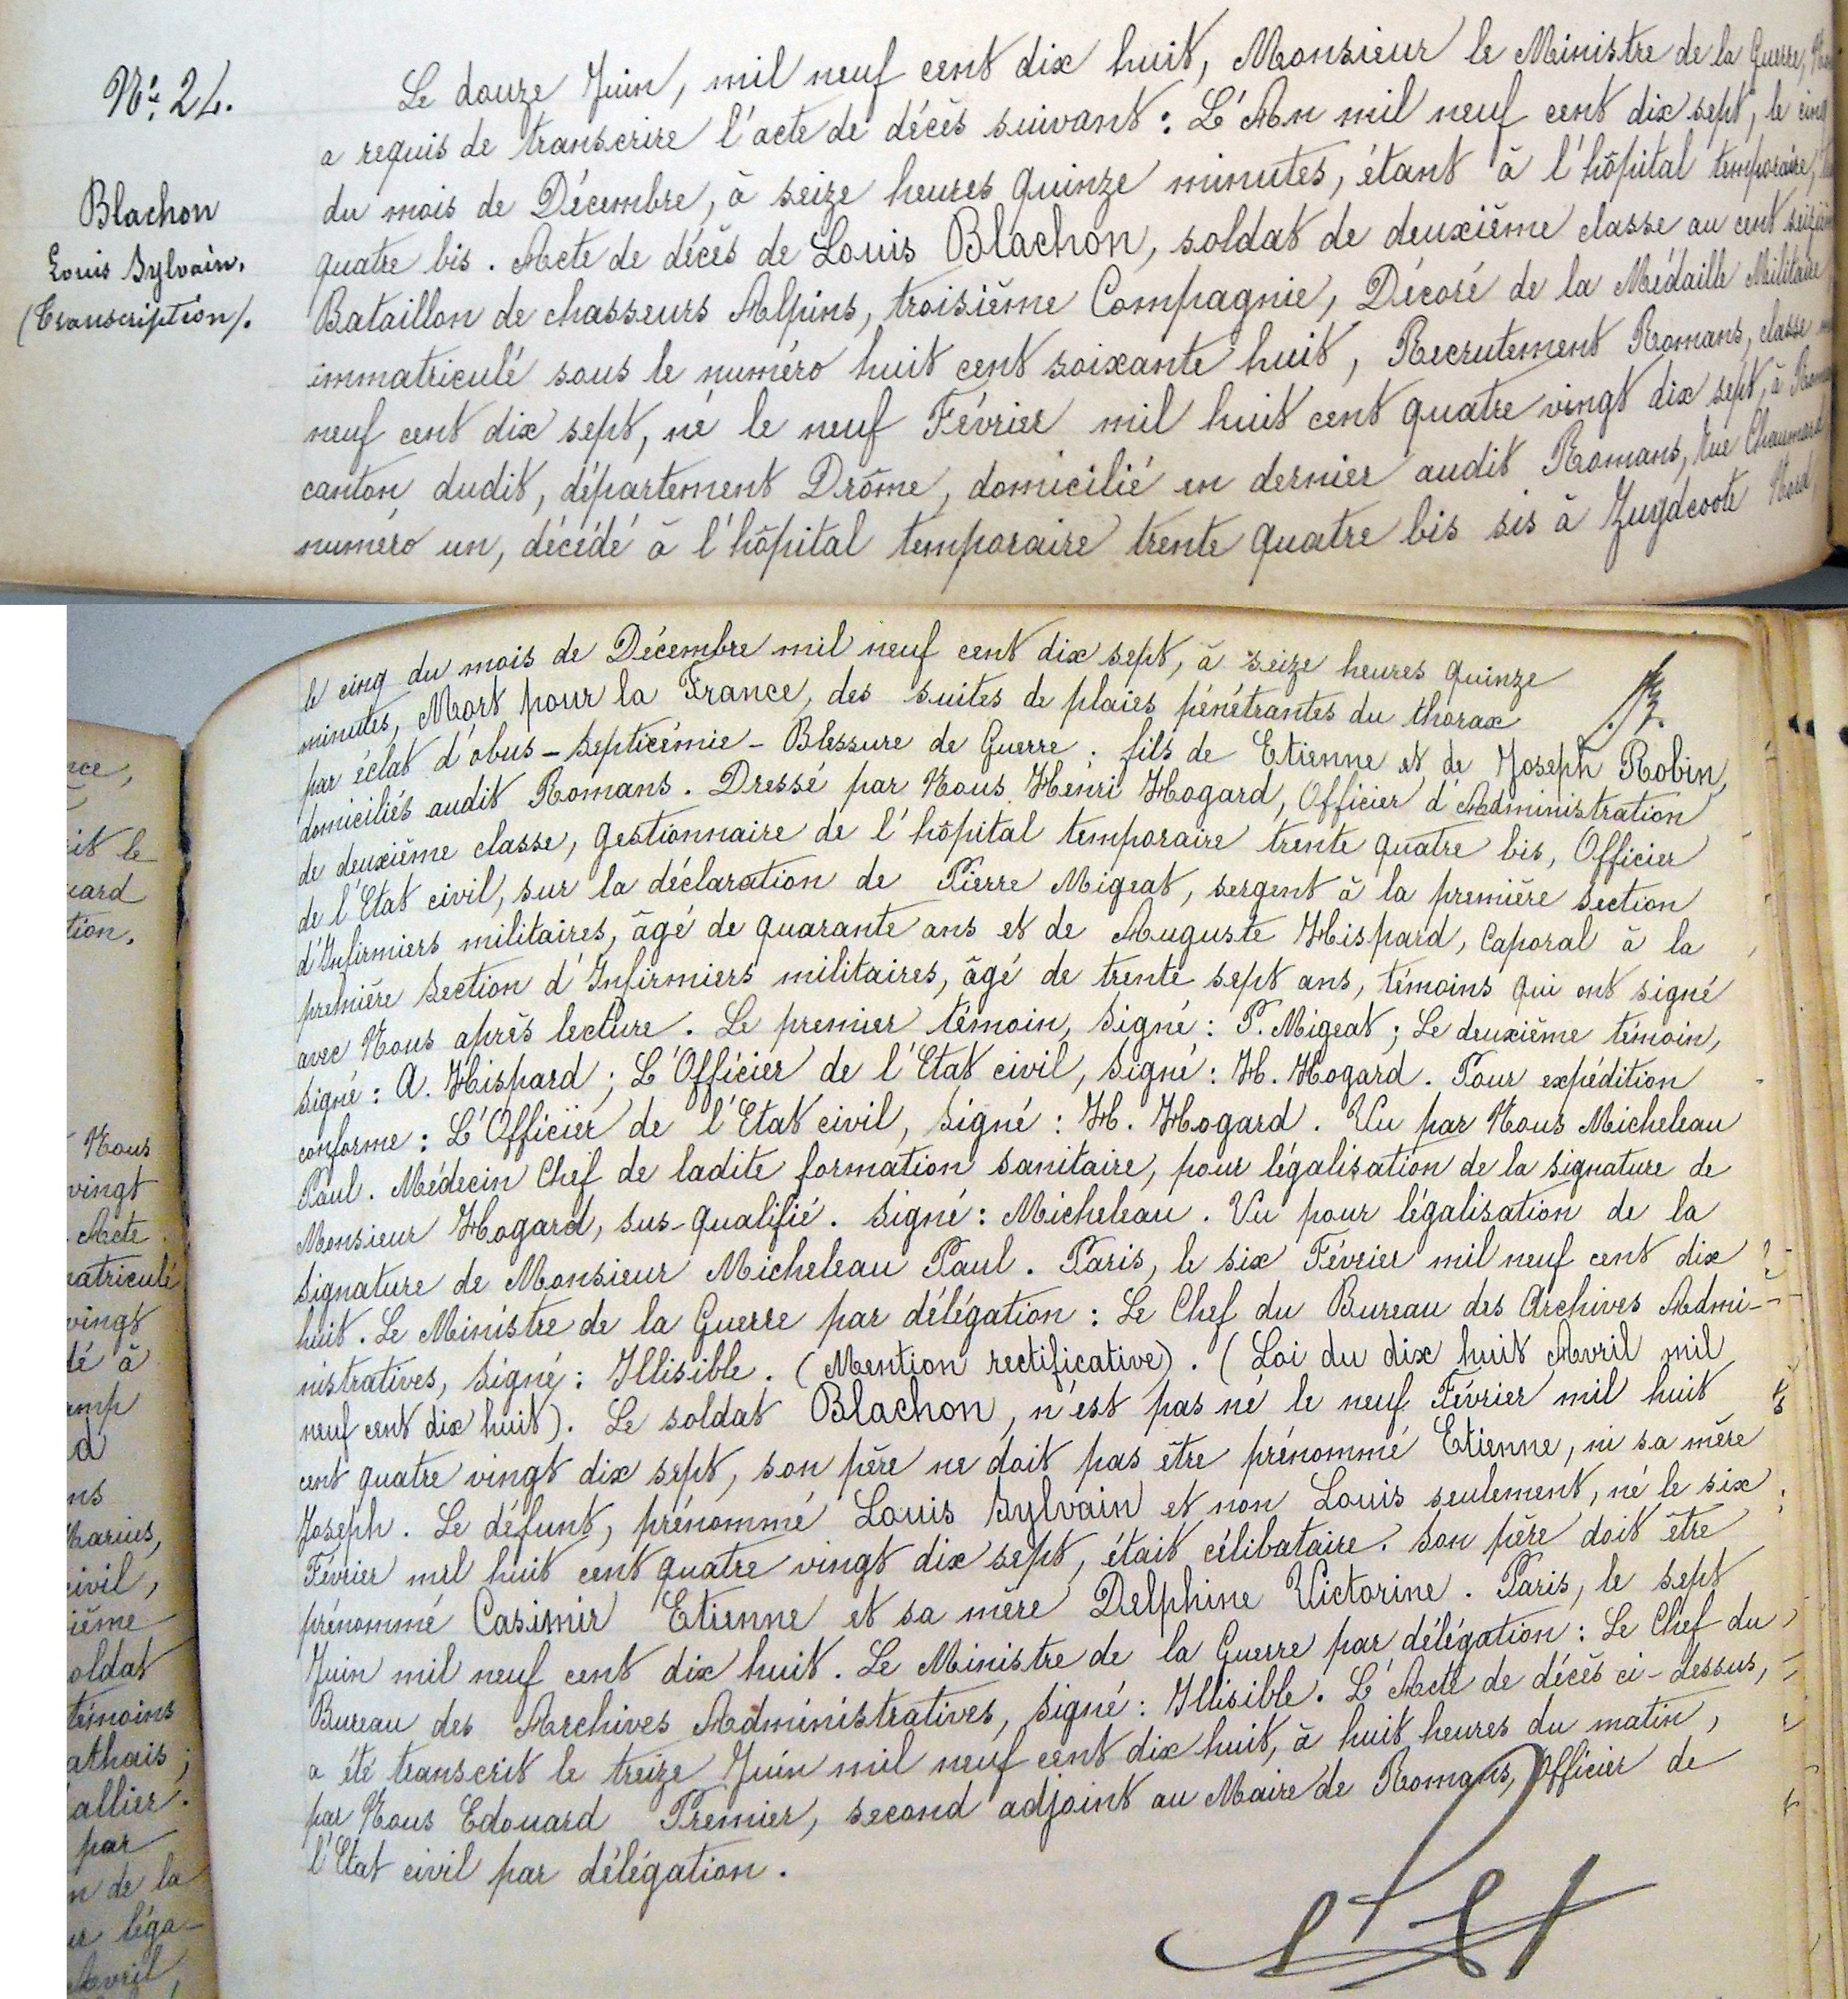 N° 24.
Blachon
Louis Sylvain.
(Transcription).
Le douze Juin, mil neuf cent dix huit, Monsieur le Ministre de la Guerre,
a requis de transcrire l'acte de décès suivant : L'An mil neuf cent dix sept, le cinq
du mois de Décembre, à seize heures quinze minutes, étant à l'hôpital temporaire,
quatre bis. Acte de décès de Louis Blachon, soldat de deuxième classe au cent seizième
Bataillon de chasseurs Alpins, troisième Compagnie, Décoré de la Médaille Militaire
immatriculé sous le numéro huit cent soixante huit, Recrutement Romans, classe
neuf cent dix sept, né le neuf Février mil huit cent quatre vingt dix sept, à
canton dudit, département Drôme, domicilié en dernier audit Romans, rue
numéro un, décédé à l'hôpital temporaire trente quatre bis sis à Zuydcoote Nord
le cinq du mois de Décembre mil neuf cent dix sept, à seize heures quinze
minutes, Mort pour la France, des suites de plaies pénétrantes du thorax
par éclat d'obus - Septicémie - Blessure de Guerre. fils de Etienne et de Joseph Robin,
domiciliés audit Romans. Dressé par Nous Henri Hogard, Officier d'Administration
de deuxième classe, gestionnaire de l'hôpital temporaire trente quatre bis, Officier
de l'Etat civil, sur la déclaration de Pierre Migeat, sergent à la première Section
d'Infirmiers militaires, âgé de quarante ans et de Auguste Hispard, Caporal à la
première Section d'Infirmiers militaires, âgé de trente sept ans, témoins qui ont signé
avec Nous après lecture. Le premier témoin, Signé : P. Migeat ; Le deuxième témoin,
Signé : A. Hispard ; L'Officier de l'Etat civil, Signé : H. Hogard. Pour expédition
conforme : L'Officier de l'Etat civil, Signé : H. Hogard. Vu par Nous Micheleau
Paul. Médecin Chef de ladite formation sanitaire, pour légalisation de la signature de
Monsieur Hogard, sus-qualifié. Signé : Micheleau. Vu pour légalisation de la
Signature de Monsieur Micheleau Paul. Paris, le six Février mil neuf cent dix
huit. Le Ministre de la Guerre par délégation : Le Chef du Bureau des Archives Admi-
nistratives, Signé : Illisible. (Mention rectificative). (Loi du dix huit Avril mil
neuf cent dix huit). Le soldat Blachon, n'est pas né le neuf Février mil huit
cent quatre vingt dix sept, son père ne doit pas être prénommé Etienne, ni sa mère
Joseph. Le défunt, prénommé Louis Sylvain et non Louis seulement, né le six
Février mil huit cent quatre vingt dix sept, était célibataire. Son père doit être
prénommé Casimir Etienne et sa mère Delphine Victorine. Paris, le sept
Juin mil neuf cent dix huit. Le Ministre de la Guerre par délégation : Le Chef du
Bureau des Archives Administratives, Signé : Illisible. L'Acte de décès ci-dessus,
a été transcrit le treize Juin mil neuf cent dix huit, à huit heures du matin,
par Nous Edouard Premier, second adjoint au Maire de Romans, Officier de
l'Etat civil par délégation.